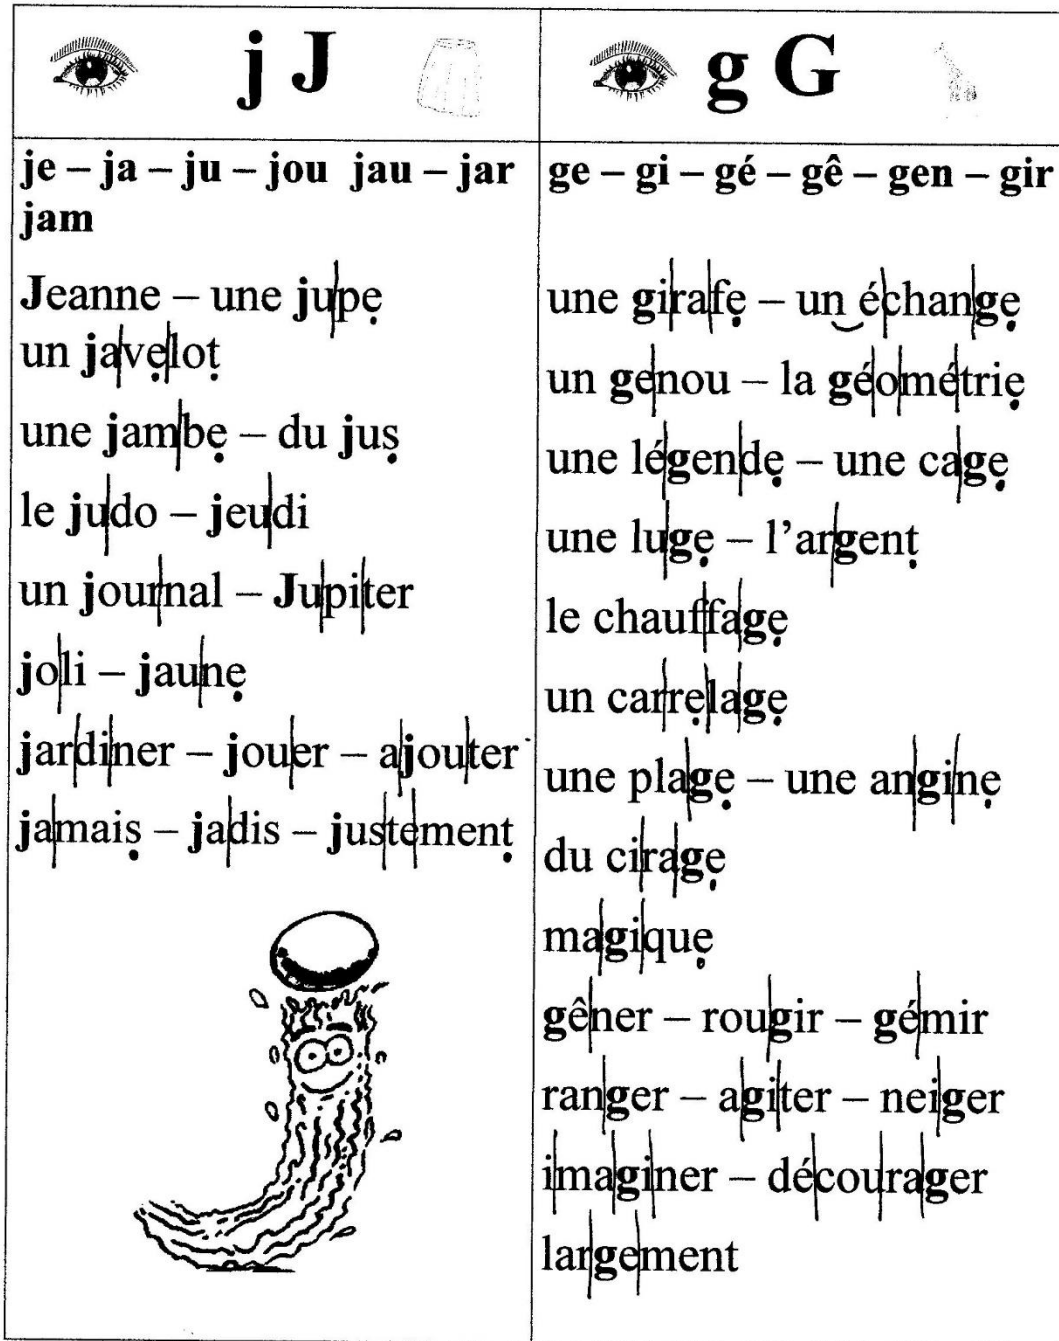 j J
je – ja – ju – jou jau – jar
jam
Jeanne – une jupe
un javelot
une jambe – du jus
le judo – jeudi
un journal – Jupiter
joli – jaune
jardiner – jouer – ajouter
jamais – jadis – justement
g G
ge – gi – gé – gê – gen – gir
une girafe – un échange
un genou – la géométrie
une légende – une cage
une luge – l’argent
le chauffage
un carrelage
une plage – une angine
du cirage
magique
gêner – rougir – gémir
ranger – agiter – neiger
imaginer – décourager
largement